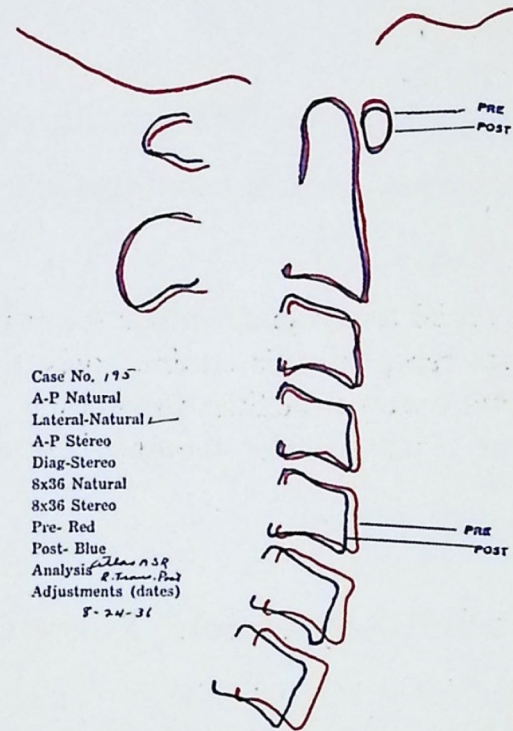 PRE
POST
Case No. 195
A-P Natural
Lateral-Natural
A-P Stereo
Diag-Stereo
8x36 Natural
8x36 Stereo
Pre- Red
PRE
Post- Blue
POST
Analysis Atlas ASR
R. Trans. Post
Adjustments (dates)
8-24-36